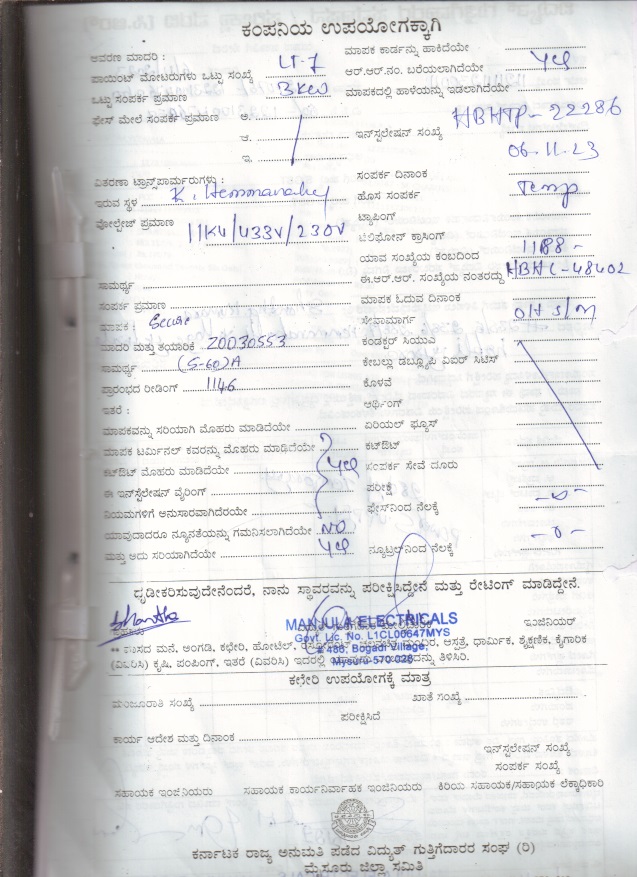 ಕಂಪನಿಯ ಉಪಯೋಗಕ್ಕಾಗಿ
ಆವರಣ ಮಾದರಿ : LT-7
ಮಾಪಕ ಕಾರ್ಡನ್ನು ಹಾಕಿದೆಯೇ
ಪಾಯಿಂಟ್ ಮೋಟರುಗಳು ಒಟ್ಟು ಸಂಖ್ಯೆ
ಆರ್.ಆರ್.ನಂ. ಬರೆಯಲಾಗಿದೆಯೇ Yes
ಒಟ್ಟು ಸಂಪರ್ಕ ಪ್ರಮಾಣ 3KW
ಮಾಪಕದಲ್ಲಿ ಹಾಳೆಯನ್ನು ಇಡಲಾಗಿದೆಯೇ
ಫೇಸ್ ಮೇಲೆ ಸಂಪರ್ಕ ಪ್ರಮಾಣ ಅ.
ಆ.
ಇ.
ಇನ್‌ಸ್ಟಲೇಷನ್ ಸಂಖ್ಯೆ HBHTP-22286
ಸಂಪರ್ಕ ದಿನಾಂಕ 06.11.23
ವಿತರಣಾ ಟ್ರಾನ್ಸ್‌ಫಾರ್ಮರುಗಳು :
ಇರುವ ಸ್ಥಳ
ಹೊಸ ಸಂಪರ್ಕ Temp
ವೋಲ್ಟೇಜ್ ಪ್ರಮಾಣ 11KV/433V/230V
ಟ್ಯಾಪಿಂಗ್
ಟೆಲಿಫೋನ್ ಕ್ರಾಸಿಂಗ್
ಯಾವ ಸಂಖ್ಯೆಯ ಕಂಬದಿಂದ
ಸಾಮರ್ಥ್ಯ
ಈ.ಆರ್.ಆರ್. ಸಂಖ್ಯೆಯ ನಂತರದ್ದು HBHL-48402
ಸಂಪರ್ಕ ಪ್ರಮಾಣ
ಮಾಪಕ ಓದುವ ದಿನಾಂಕ
ಮಾಪಕ : Secure
ಸೇವಾಮಾರ್ಗ OH S/M
ಮಾದರಿ ಮತ್ತು ತಯಾರಿಕೆ 20030553
ಕಂಡಕ್ಟರ್ ಸಿಯುವೆ
ಸಾಮರ್ಥ್ಯ (5-60)A
ಕೇಬಲ್ಲು ಡಬ್ಲ್ಯೂಪಿ ವಿಐಆರ್ ಸಿಟಿಸ್
ಪ್ರಾರಂಭದ ರೀಡಿಂಗ್ 1146
ಕೊಳವೆ
ಇತರೆ :
ಅರ್ಥಿಂಗ್
ಮಾಪಕವನ್ನು ಸರಿಯಾಗಿ ಮೊಹರು ಮಾಡಿದೆಯೇ
ಏರಿಯಲ್ ಫ್ಯೂಸ್
ಮಾಪಕ ಟರ್ಮಿನಲ್ ಕವರನ್ನು ಮೊಹರು ಮಾಡಿದೆಯೇ
ಕಟ್‌ಔಟ್
ಕಟ್‌ಔಟ್ ಮೊಹರು ಮಾಡಿದೆಯೇ Yes
ಸಂಪರ್ಕ ಸೇವೆ ದೂರು
ಈ ಇನ್‌ಸ್ಟೆಲೇಷನ್ ವೈರಿಂಗ್
ಪರೀಕ್ಷೆ
ನಿಯಮಗಳಿಗೆ ಅನುಸಾರವಾಗಿದೆಯೇ
ಫೇಸ್‌ನಿಂದ ನೆಲಕ್ಕೆ
ಯಾವುದಾದರೂ ನ್ಯೂನತೆಯನ್ನು ಗಮನಿಸಲಾಗಿದೆಯೇ NO
ಮತ್ತು ಅದು ಸರಿಯಾಗಿದೆಯೇ Yes
ನ್ಯೂಟ್ರಲ್‌ನಿಂದ ನೆಲಕ್ಕೆ
ದೃಡೀಕರಿಸುವುದೇನೆಂದರೆ, ನಾನು ಸ್ಥಾವರವನ್ನು ಪರೀಕ್ಷಿಸಿದ್ದೇನೆ ಮತ್ತು ರೇಟಿಂಗ್ ಮಾಡಿದ್ದೇನೆ.
MANJULA ELECTRICALS
ಇಂಜಿನಿಯರ್
Govt. Lic. No. L1CL00647MYS
# 486, Bogadi Village,
Mysuru-570 026
** ವಾಸದ ಮನೆ, ಅಂಗಡಿ, ಕಛೇರಿ, ಹೋಟೆಲ್, ಮಂದಿರ, ಆಸ್ಪತ್ರೆ, ಧಾರ್ಮಿಕ, ಶೈಕ್ಷಣಿಕ, ಕೈಗಾರಿಕ
(ವಿವರಿಸಿ) ಕೃಷಿ, ಪಂಪಿಂಗ್, ಇತರೆ (ವಿವರಿಸಿ) ಇದರಲ್ಲಿ ತಿಳಿಸಿರಿ.
ಕಛೇರಿ ಉಪಯೋಗಕ್ಕೆ ಮಾತ್ರ
ಮಂಜೂರಾತಿ ಸಂಖ್ಯೆ
ಖಾತೆ ಸಂಖ್ಯೆ
ಪರೀಕ್ಷಿಸಿದೆ
ಕಾರ್ಯ ಆದೇಶ ಮತ್ತು ದಿನಾಂಕ
ಇನ್‌ಸ್ಟಲೇಷನ್ ಸಂಖ್ಯೆ
ಸಂಪರ್ಕ ಸಂಖ್ಯೆ
ಸಹಾಯಕ ಇಂಜಿನಿಯರು ಸಹಾಯಕ ಕಾರ್ಯನಿರ್ವಾಹಕ ಇಂಜಿನಿಯರು ಕಿರಿಯ ಸಹಾಯಕ/ಸಹಾಯಕ ಲೆಕ್ಕಾಧಿಕಾರಿ
ಕರ್ನಾಟಕ ರಾಜ್ಯ ಅನುಮತಿ ಪಡೆದ ವಿದ್ಯುತ್ ಗುತ್ತಿಗೆದಾರರ ಸಂಘ (ರಿ)
ಮೈಸೂರು ಜಿಲ್ಲಾ ಸಮಿತಿ